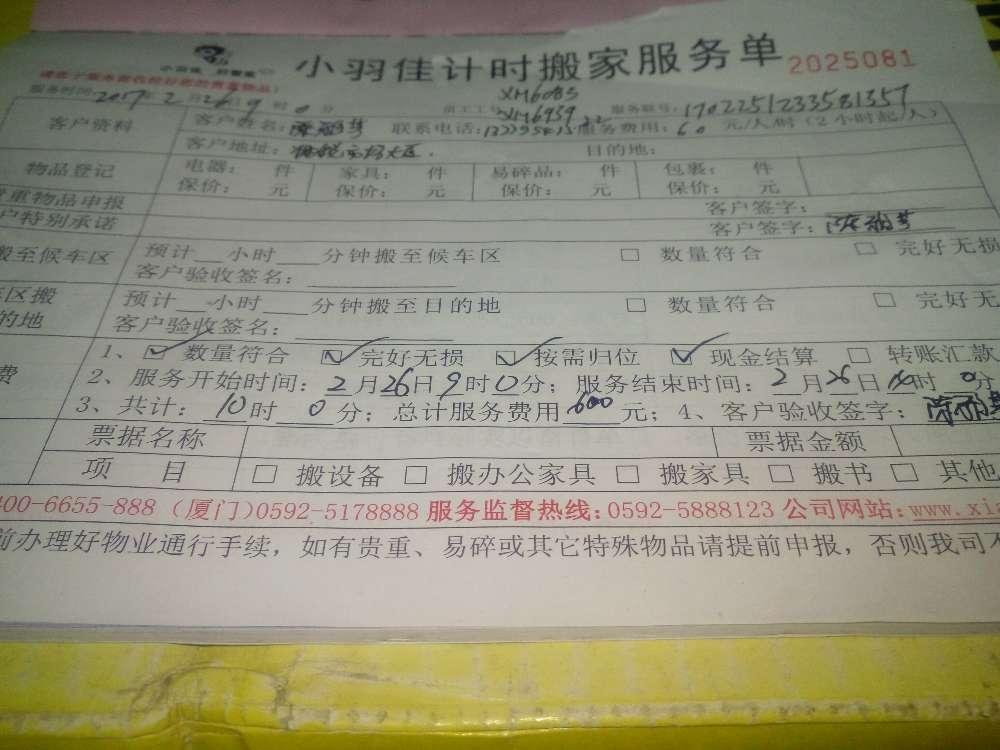 小羽佳计时搬家服务单 2025081
服务时间：2017年2月26日9时0分 员工工号 XM6085 XM6939 服务联号：1702251233581357
客户资料 客户姓名： 联系电话： 服务费用：60元/人/时（2小时起/人）
客户地址： 目的地：
物品登记 电器： 件 家具： 件 易碎品： 件 包裹： 件
保价： 元 保价： 元 保价： 元 保价： 元
重物品申报 客户签字：
户特别承诺 客户签字：
搬至候车区 预计__小时___分钟搬至候车区 □ 数量符合 □ 完好无损
客户验收签名：
区搬 预计__小时___分钟搬至目的地 □ 数量符合 □ 完好无
的地 客户验收签名：
1、☑ 数量符合 ☑ 完好无损 ☑ 按需归位 ☑ 现金结算 □ 转账汇款
费 2、服务开始时间：2月26日9时0分；服务结束时间：2月26日 时0分
3、共计：10时0分；总计服务费用600元；4、客户验收签字：
票据名称 票据金额
项 目 □ 搬设备 □ 搬办公家具 □ 搬家具 □ 搬书 □ 其他
400-6655-888（厦门）0592-5178888 服务监督热线：0592-5888123 公司网站：www.xi
前办理好物业通行手续，如有贵重、易碎或其它特殊物品请提前申报，否则我司不